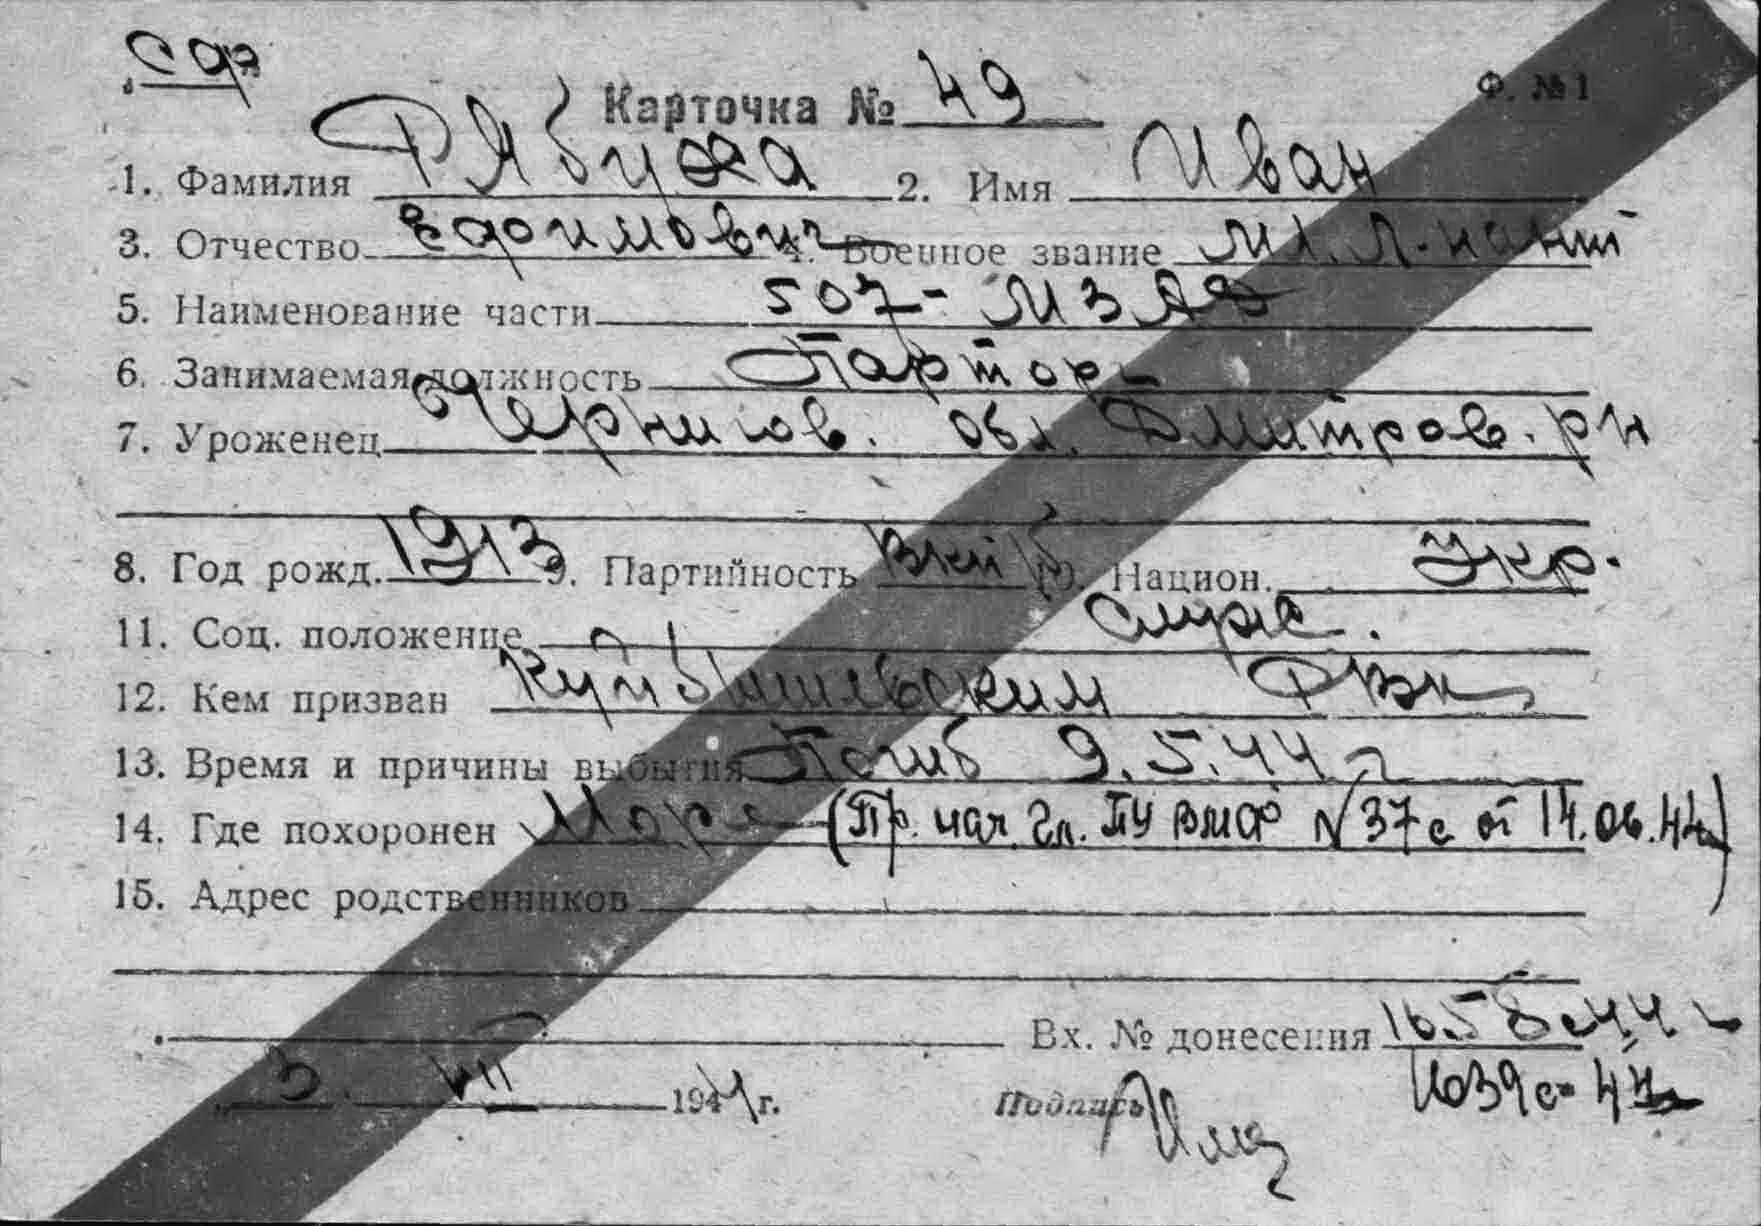 Карточка № 49
Ф. № 1
1. Фамилия Рябуха 2. Имя Иван
3. Отчество Ефимович 4. Военное звание мл. л-нант
5. Наименование части 507-МЗАД
6. Занимаемая должность Парторг
7. Уроженец Чернигов. обл. Дмитров. р-н
8. Год рожд. 1913 9. Партийность ВКПб 10. Национ. Укр.
11. Соц. положение Служ.
12. Кем призван Куйбышевским РВК
13. Время и причины выбытия Погиб 9.5.44 г
14. Где похоронен Море (Пр. нач. Гл. ПУ ВМФ № 37с от 14.06.44)
15. Адрес родственников
Вх. № донесения 1658с 44 г
1639с-44
3. VII 1944 г. Подпись